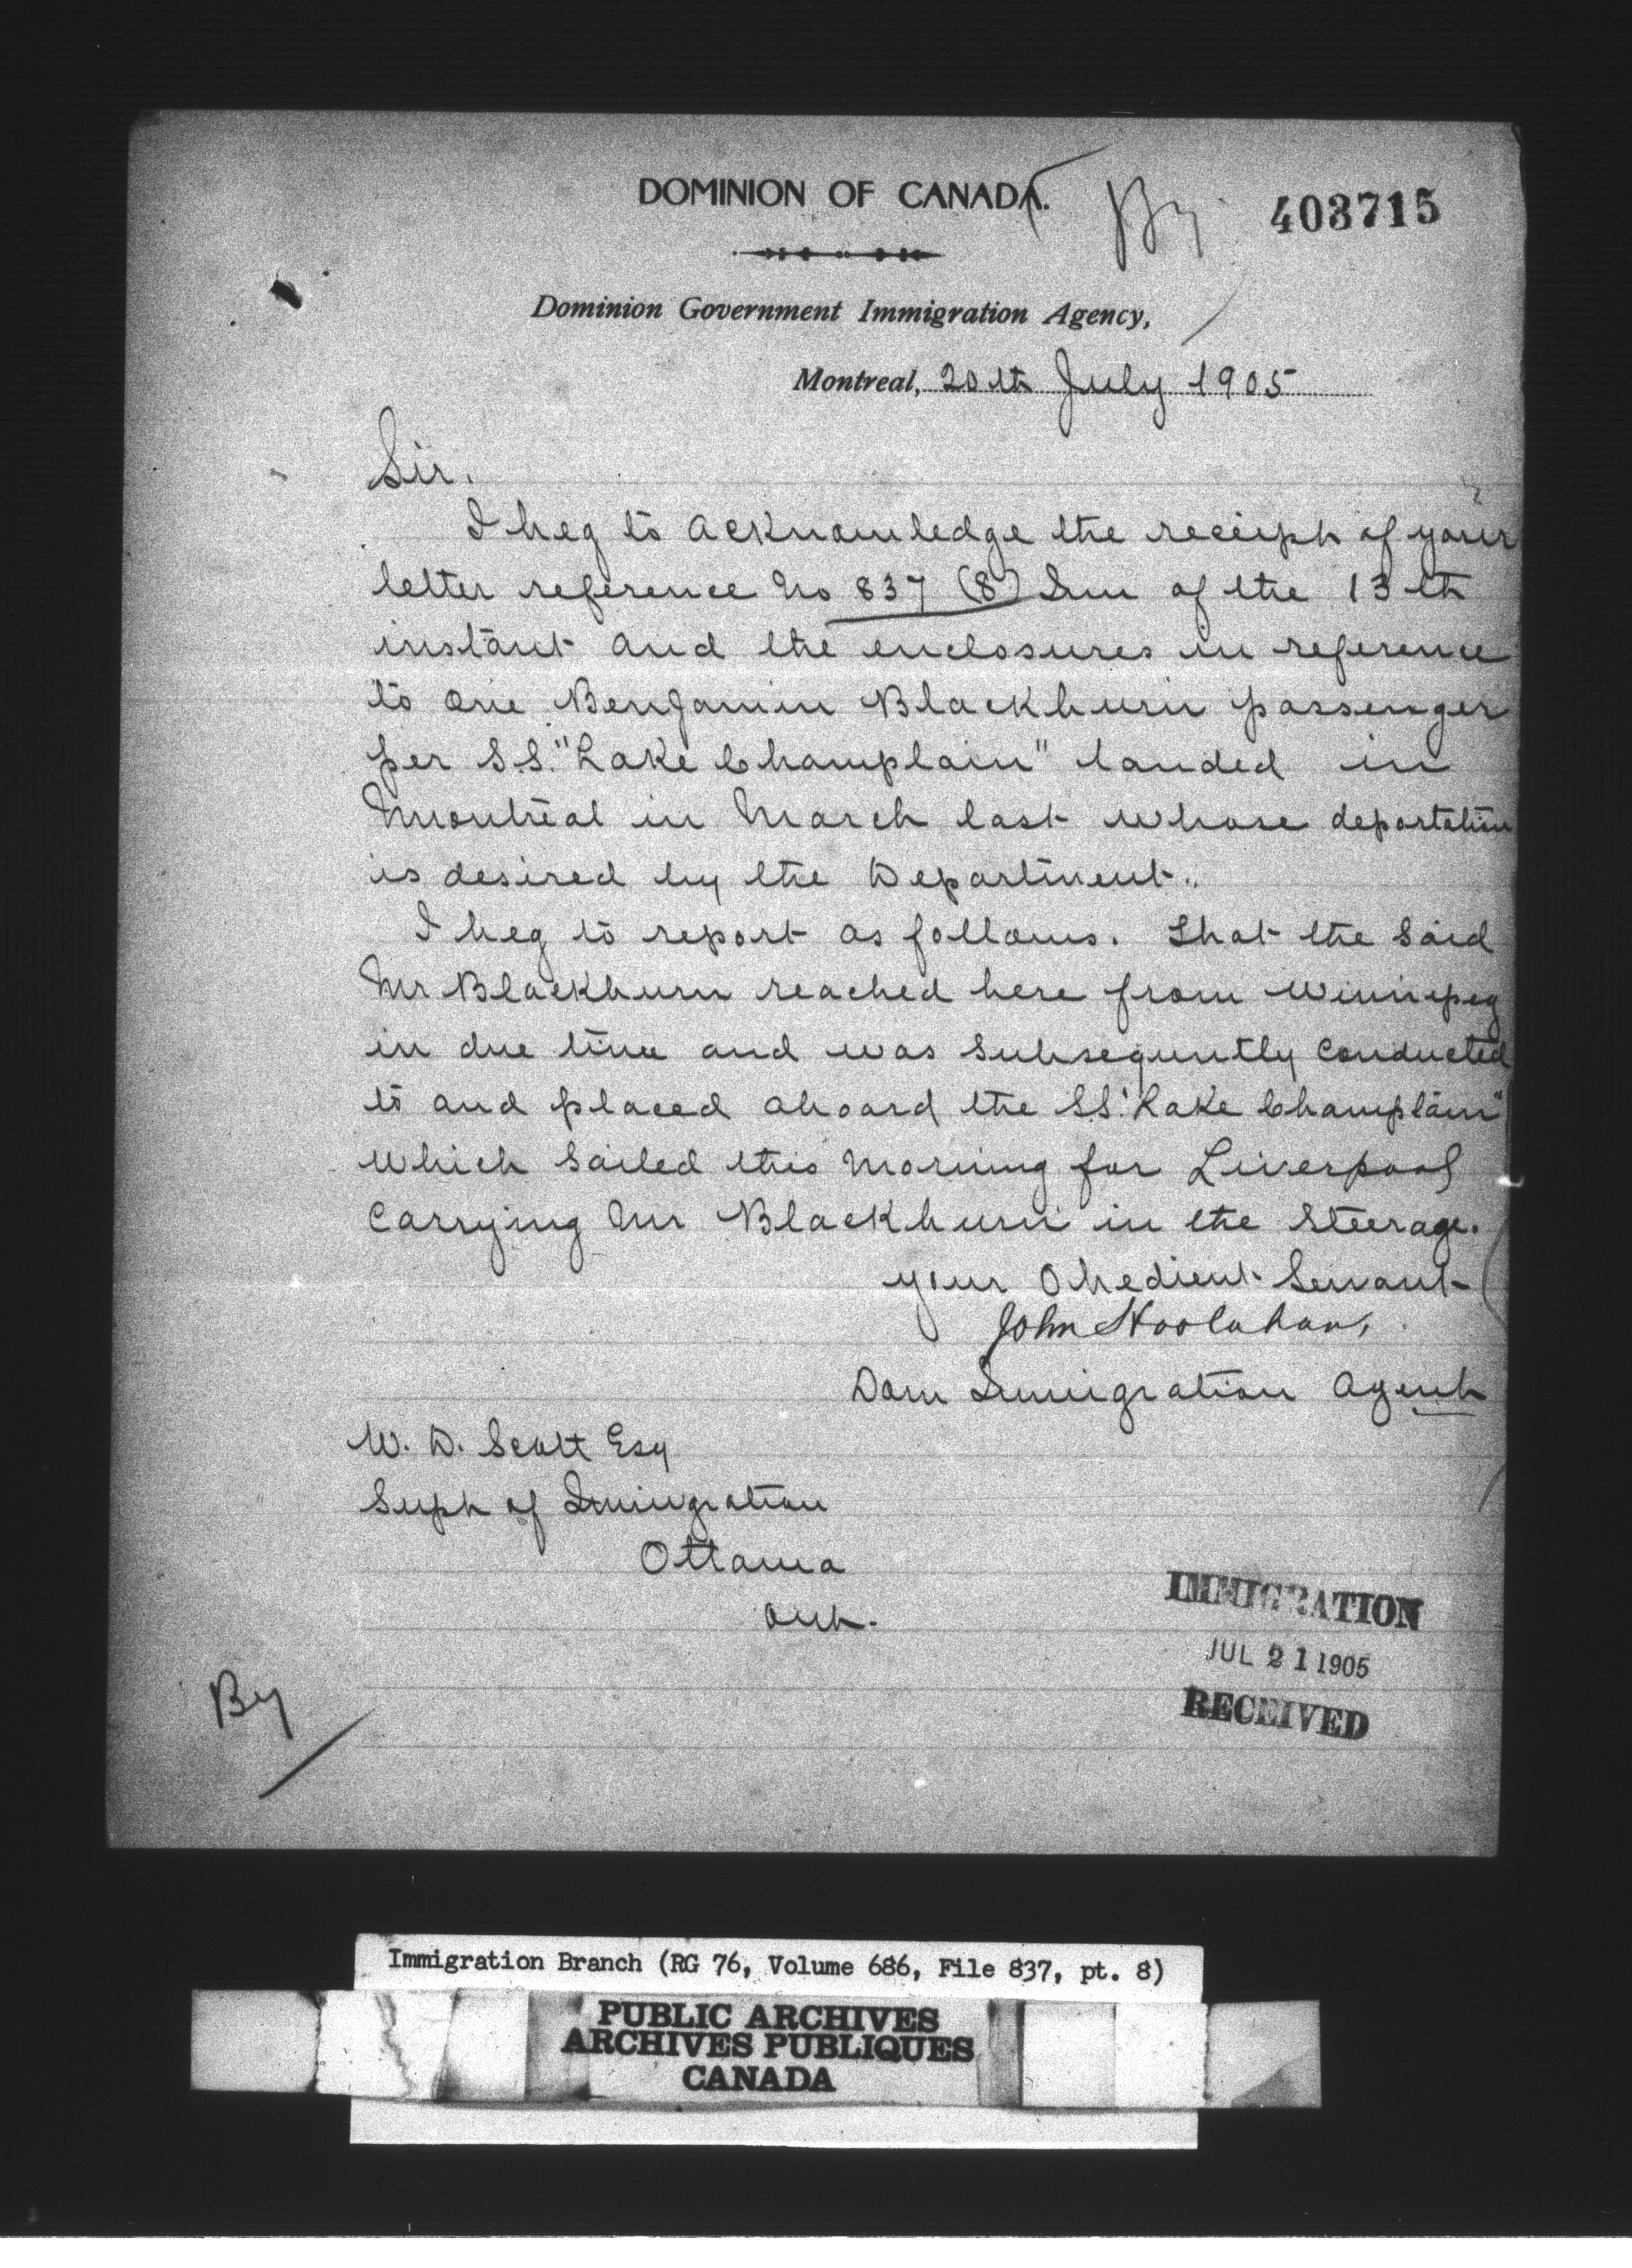 DOMINION OF CANADA.
By
403715
Dominion Government Immigration Agency,
Montreal, 20th July 1905
Sir.
I beg to acknowledge the receipt of your
letter reference No 837 (8) Imm of the 13th
instant and the enclosures in reference
to one Benjamin Blackburn passenger
per S.S. "Lake Champlain" landed in
Montreal in March last whose deportation
is desired by the Department.
I beg to report as follows. That the said
Mr Blackburn reached here from Winnipeg
in due time and was subsequntly conducted
to and placed aboard the SS. "Lake Champlain"
which sailed this morning for Liverpool
carrying Mr Blackburn in the steerage.
your Obedient Servant
John Hoolahan,
Dom Immigration Agent
W. D. Scott Esq
Supt of Immigration
Ottawa
Ont.
IMMIGRATION
JUL 21 1905
RECEIVED
By
Immigration Branch (RG 76, Volume 686, File 837, pt. 8)
PUBLIC ARCHIVES
ARCHIVES PUBLIQUES
CANADA